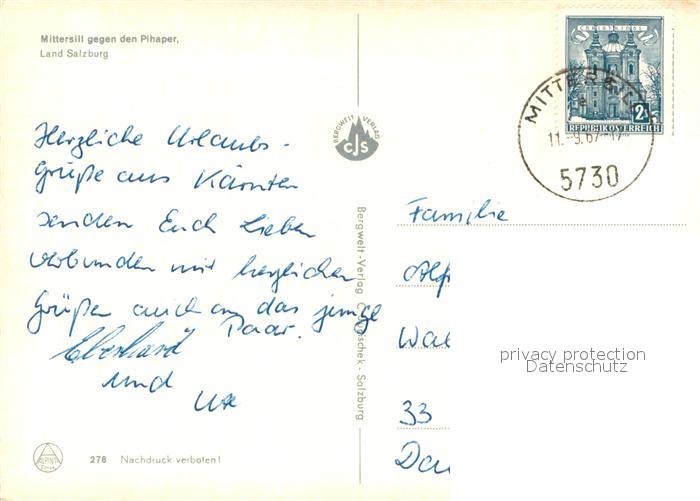 Mittersill gegen den Pihaper,
Land Salzburg
Herzliche Urlaubs-
grüße aus Kärnten
senden Euch Lieben
verbunden mit herzlichen
Grüßen auch an das junge
Paar.
Eberhard
und
Ute
BERGWELT VERLAG
CJS
Bergwelt-Verlag C. Jurischek - Salzburg
CHRISTKINDL
2S
REPUBLIK ÖSTERREICH
MITTERSILL
11.-9.67-17
5730
Familie
Alf
Wal
33
Da
privacy protection
Datenschutz
ALPINA
278 Nachdruck verboten!